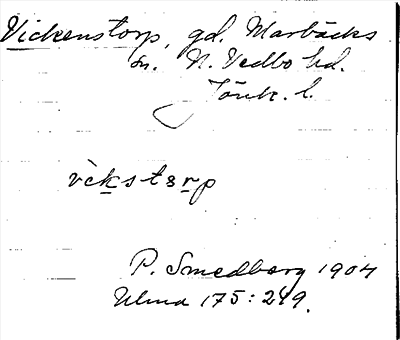 Vickenstorp, gd. Marbäcks
sn. N. Vedbo hd.
Jönk. l.
vèkstɜrp
P. Smedberg 1904
Ulma 175:249.